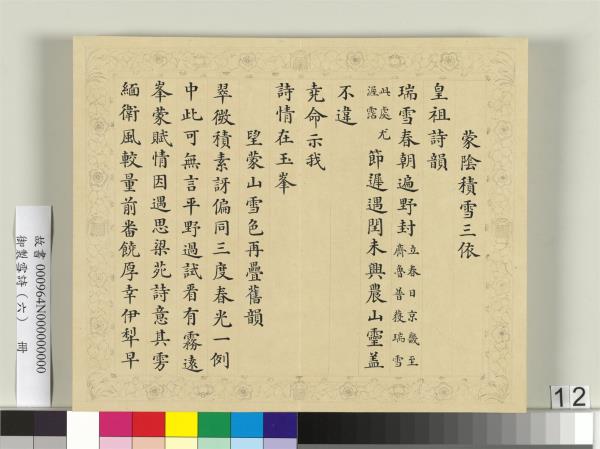 蒙陰積雪三依
皇祖詩韻
瑞雪春朝遍野封立春日京畿至齊魯普獲瑞雪
此處尤渥霑節遲遇閏未興農山靈盖
不違
堯命示我
詩情在玉峯
望蒙山雪色再疊舊韻
翠微積素訝偏同三度春光一例
中此可無言平野過試看有霧遠
峯蒙賦情因遇思梁苑詩意其雱
緬衛風較量前番饒厚幸伊犁早
故書 000964N000000000
御製雪詩(六) 冊
12